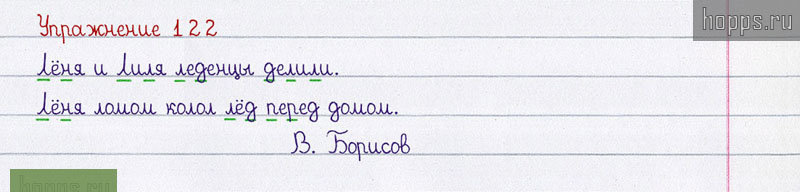 hopps.ru
Упражнение 122
Лёня и Лиля леденцы делили.
Лёня ломом колол лёд перед домом.
В. Борисов
hopps.ru